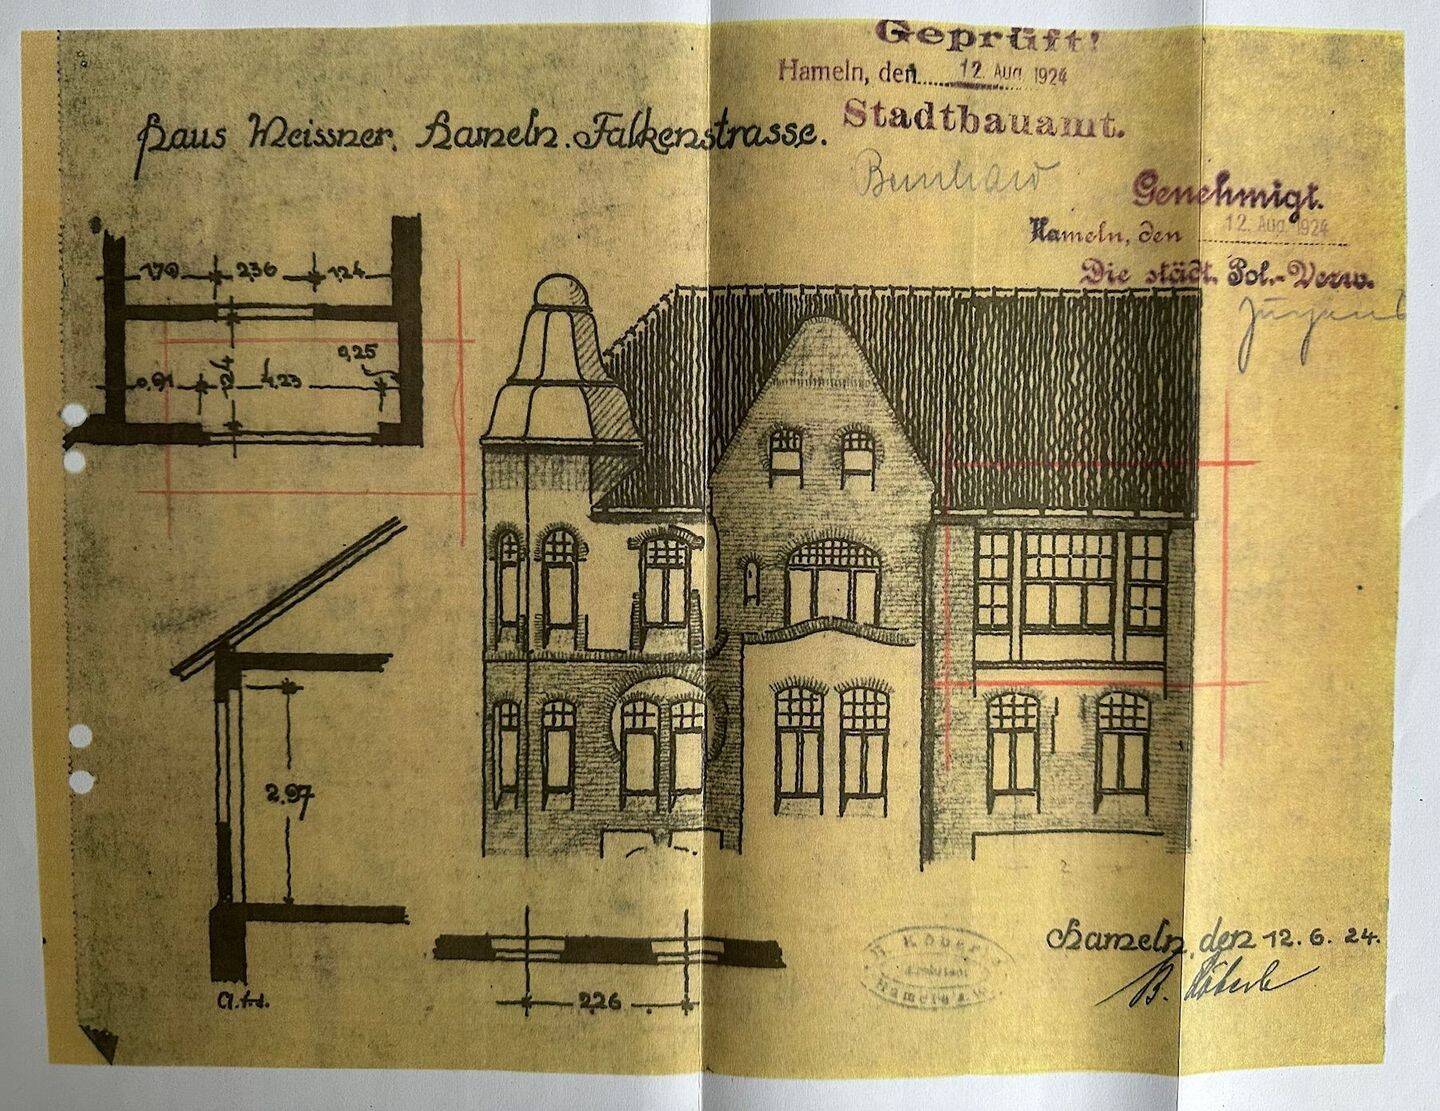 Geprüft!
Hameln, den 12. Aug. 1924
Stadtbauamt.
Haus Meissner, Hameln. Falkenstrasse.
Genehmigt.
Hameln, den 12. Aug. 1924
Die städt. Pol.-Verw.
1.70 2.36 1.24
0,25
0,91 4.23
2.97
2.26
Hameln, den 12. 6. 24.
B. Köberle